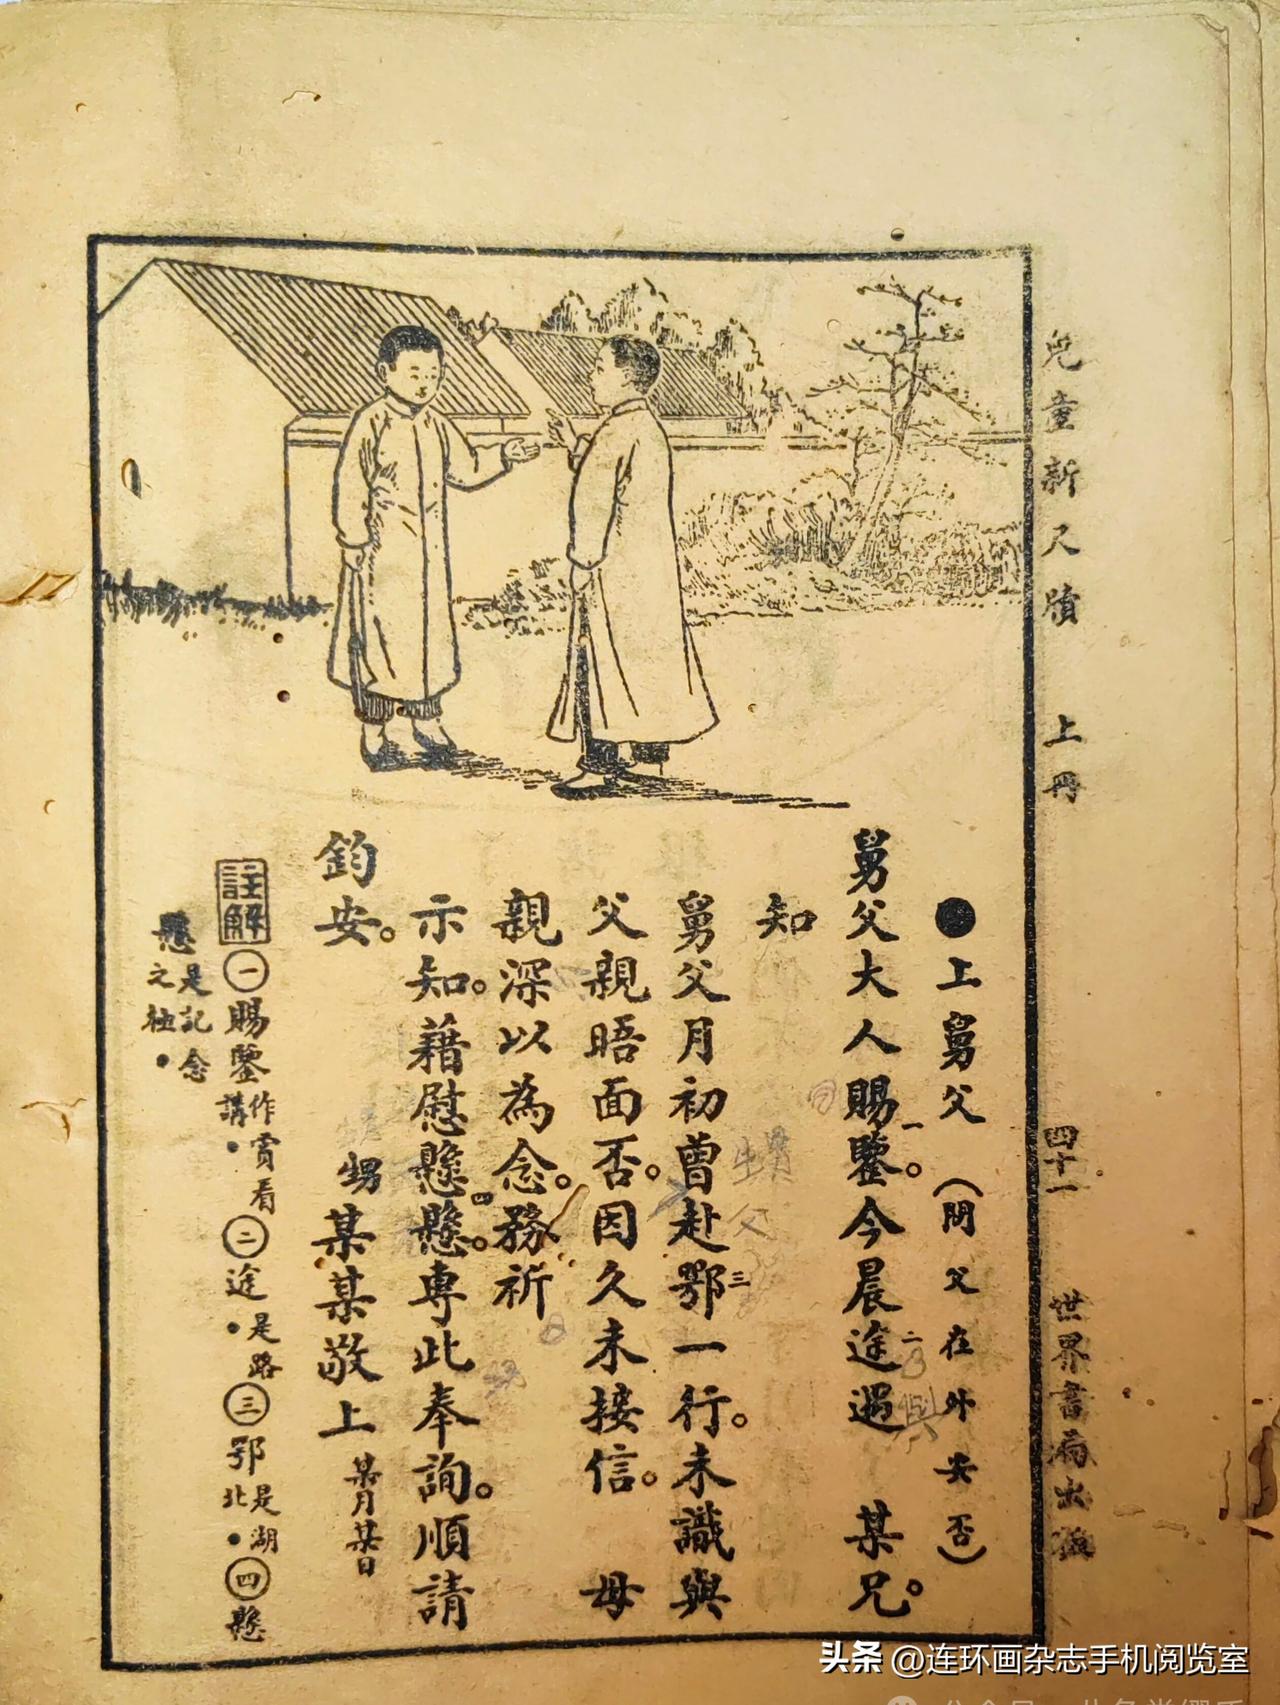 兒童新尺牘　上冊　四十一　世界書局出版
●上舅父（問父在外安否）
舅父大人賜鑒一。今晨途二遇　某兄。
知
舅父月初曾赴鄂三一行。未識與
父親晤面否。因久未接信。　母
親深以為念。務祈
示知。藉慰懸懸四。專此奉詢。順請
鈞安。
甥某某敬上　某月某日
註解　㊀賜鑒作賞看講．㊁途是路．㊂鄂是湖北．㊃懸
懸是記念之極．
头条 @连环画杂志手机阅览室